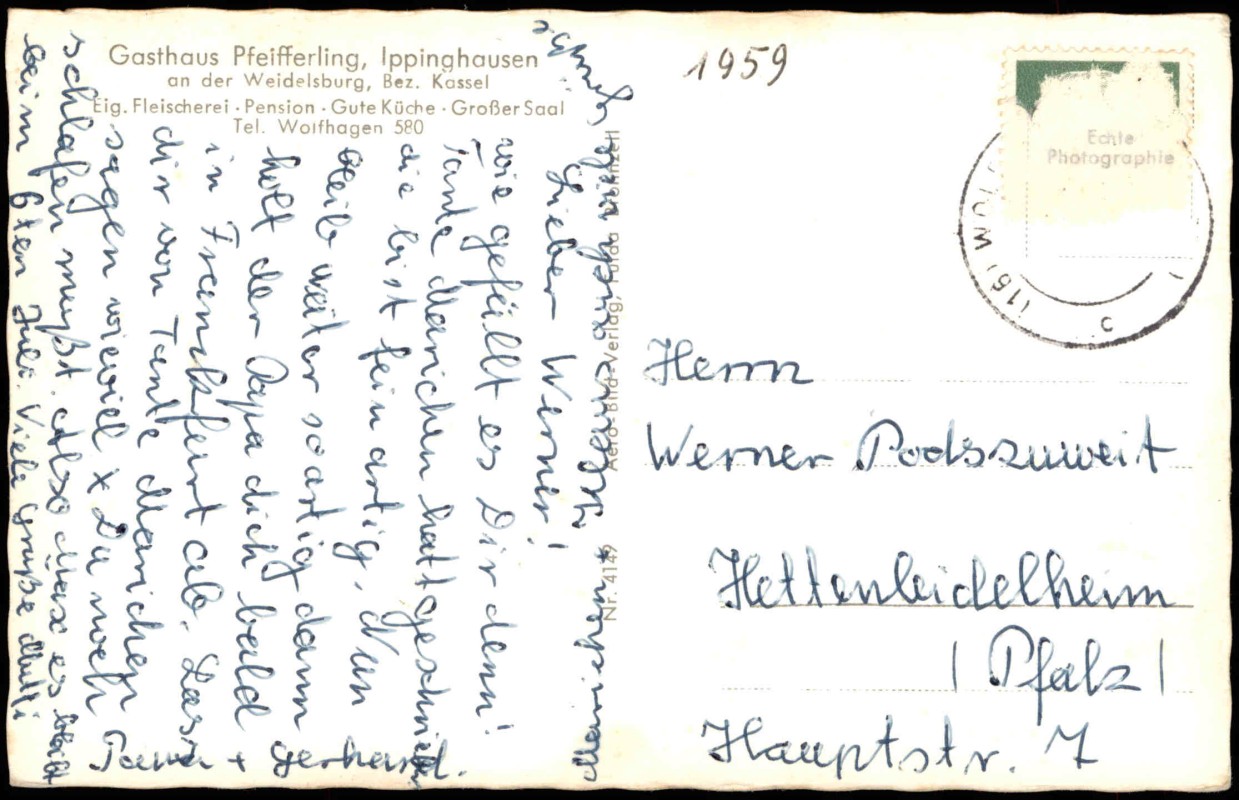 Gasthaus Pfeifferling, Ippinghausen
an der Weidelsburg, Bez. Kassel
Eig. Fleischerei · Pension · Gute Küche · Großer Saal
Tel. Wolfhagen 580
1959
Echte
Photographie
(16) WOLF
c
Lieber Werner!
wie gefällt es Dir denn!
Tante Marichen hat geschrieben
die bist fein artig, Nun
bleib weiter so artig dann
holt der Papa dich bald
in Frankfurt ab. Lass
dir von Tante Marichen
sagen wieviel x Du noch
schlafen mußt. Also es bleibt
beim 6ten Juli. Viele Grüße Mutti
Papa + Gerhard.
Marichen + Klaus auch viele
Nr. 4149 Aero-Bild-Verlag, Fulda
Herrn
Werner Podszuweit
Hettenleidelheim
/ Pfalz /
Hauptstr. 7